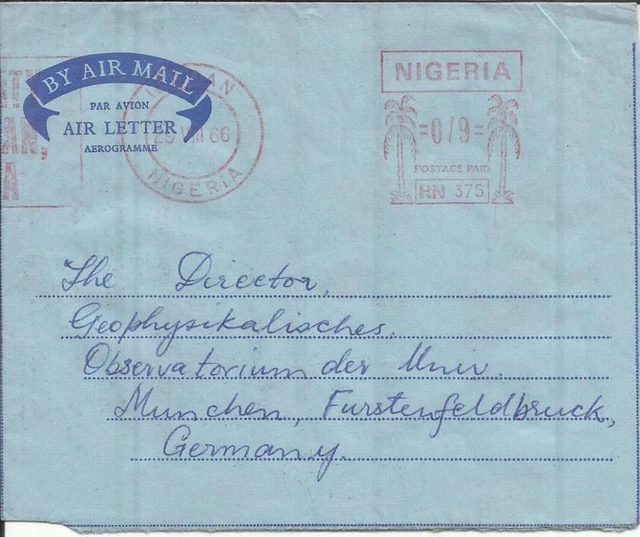 BY AIR MAIL
PAR AVION
AIR LETTER
AEROGRAMME
NIGERIA
NIGERIA
=0/9=
POSTAGE PAID
RN 375
The Director,
Geophysikalisches,
Observatorium der Univ.
Munchen, Furstenfeldbruck,
Germany.